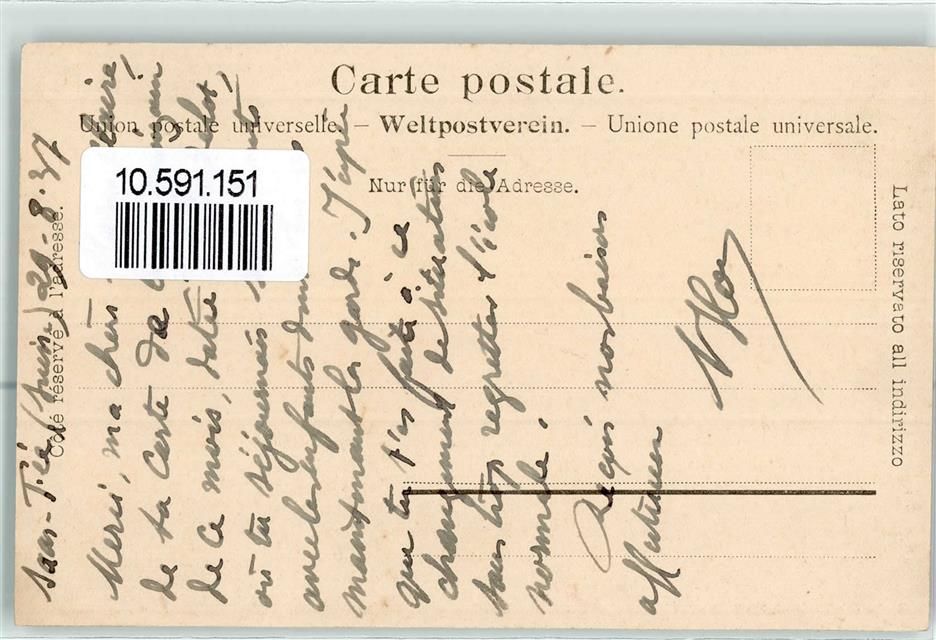 Carte postale.
Union postale universelle. — Weltpostverein. — Unione postale universale.
Nur für die Adresse.
Côté réservé à l'adresse.
Lato riservato all indirizzo
10.591.151
Saas-Fée (Suisse) 29-8-37
Merci, ma chère
de ta carte da
de ce mois, datée
où tu séjournais
avec les enfants dont
maintenant la garde. J'espère
que tu t'es faite à ce
changement de situation
sans trop regretter l'école
normale.
Reçois nos baisers
affectueux